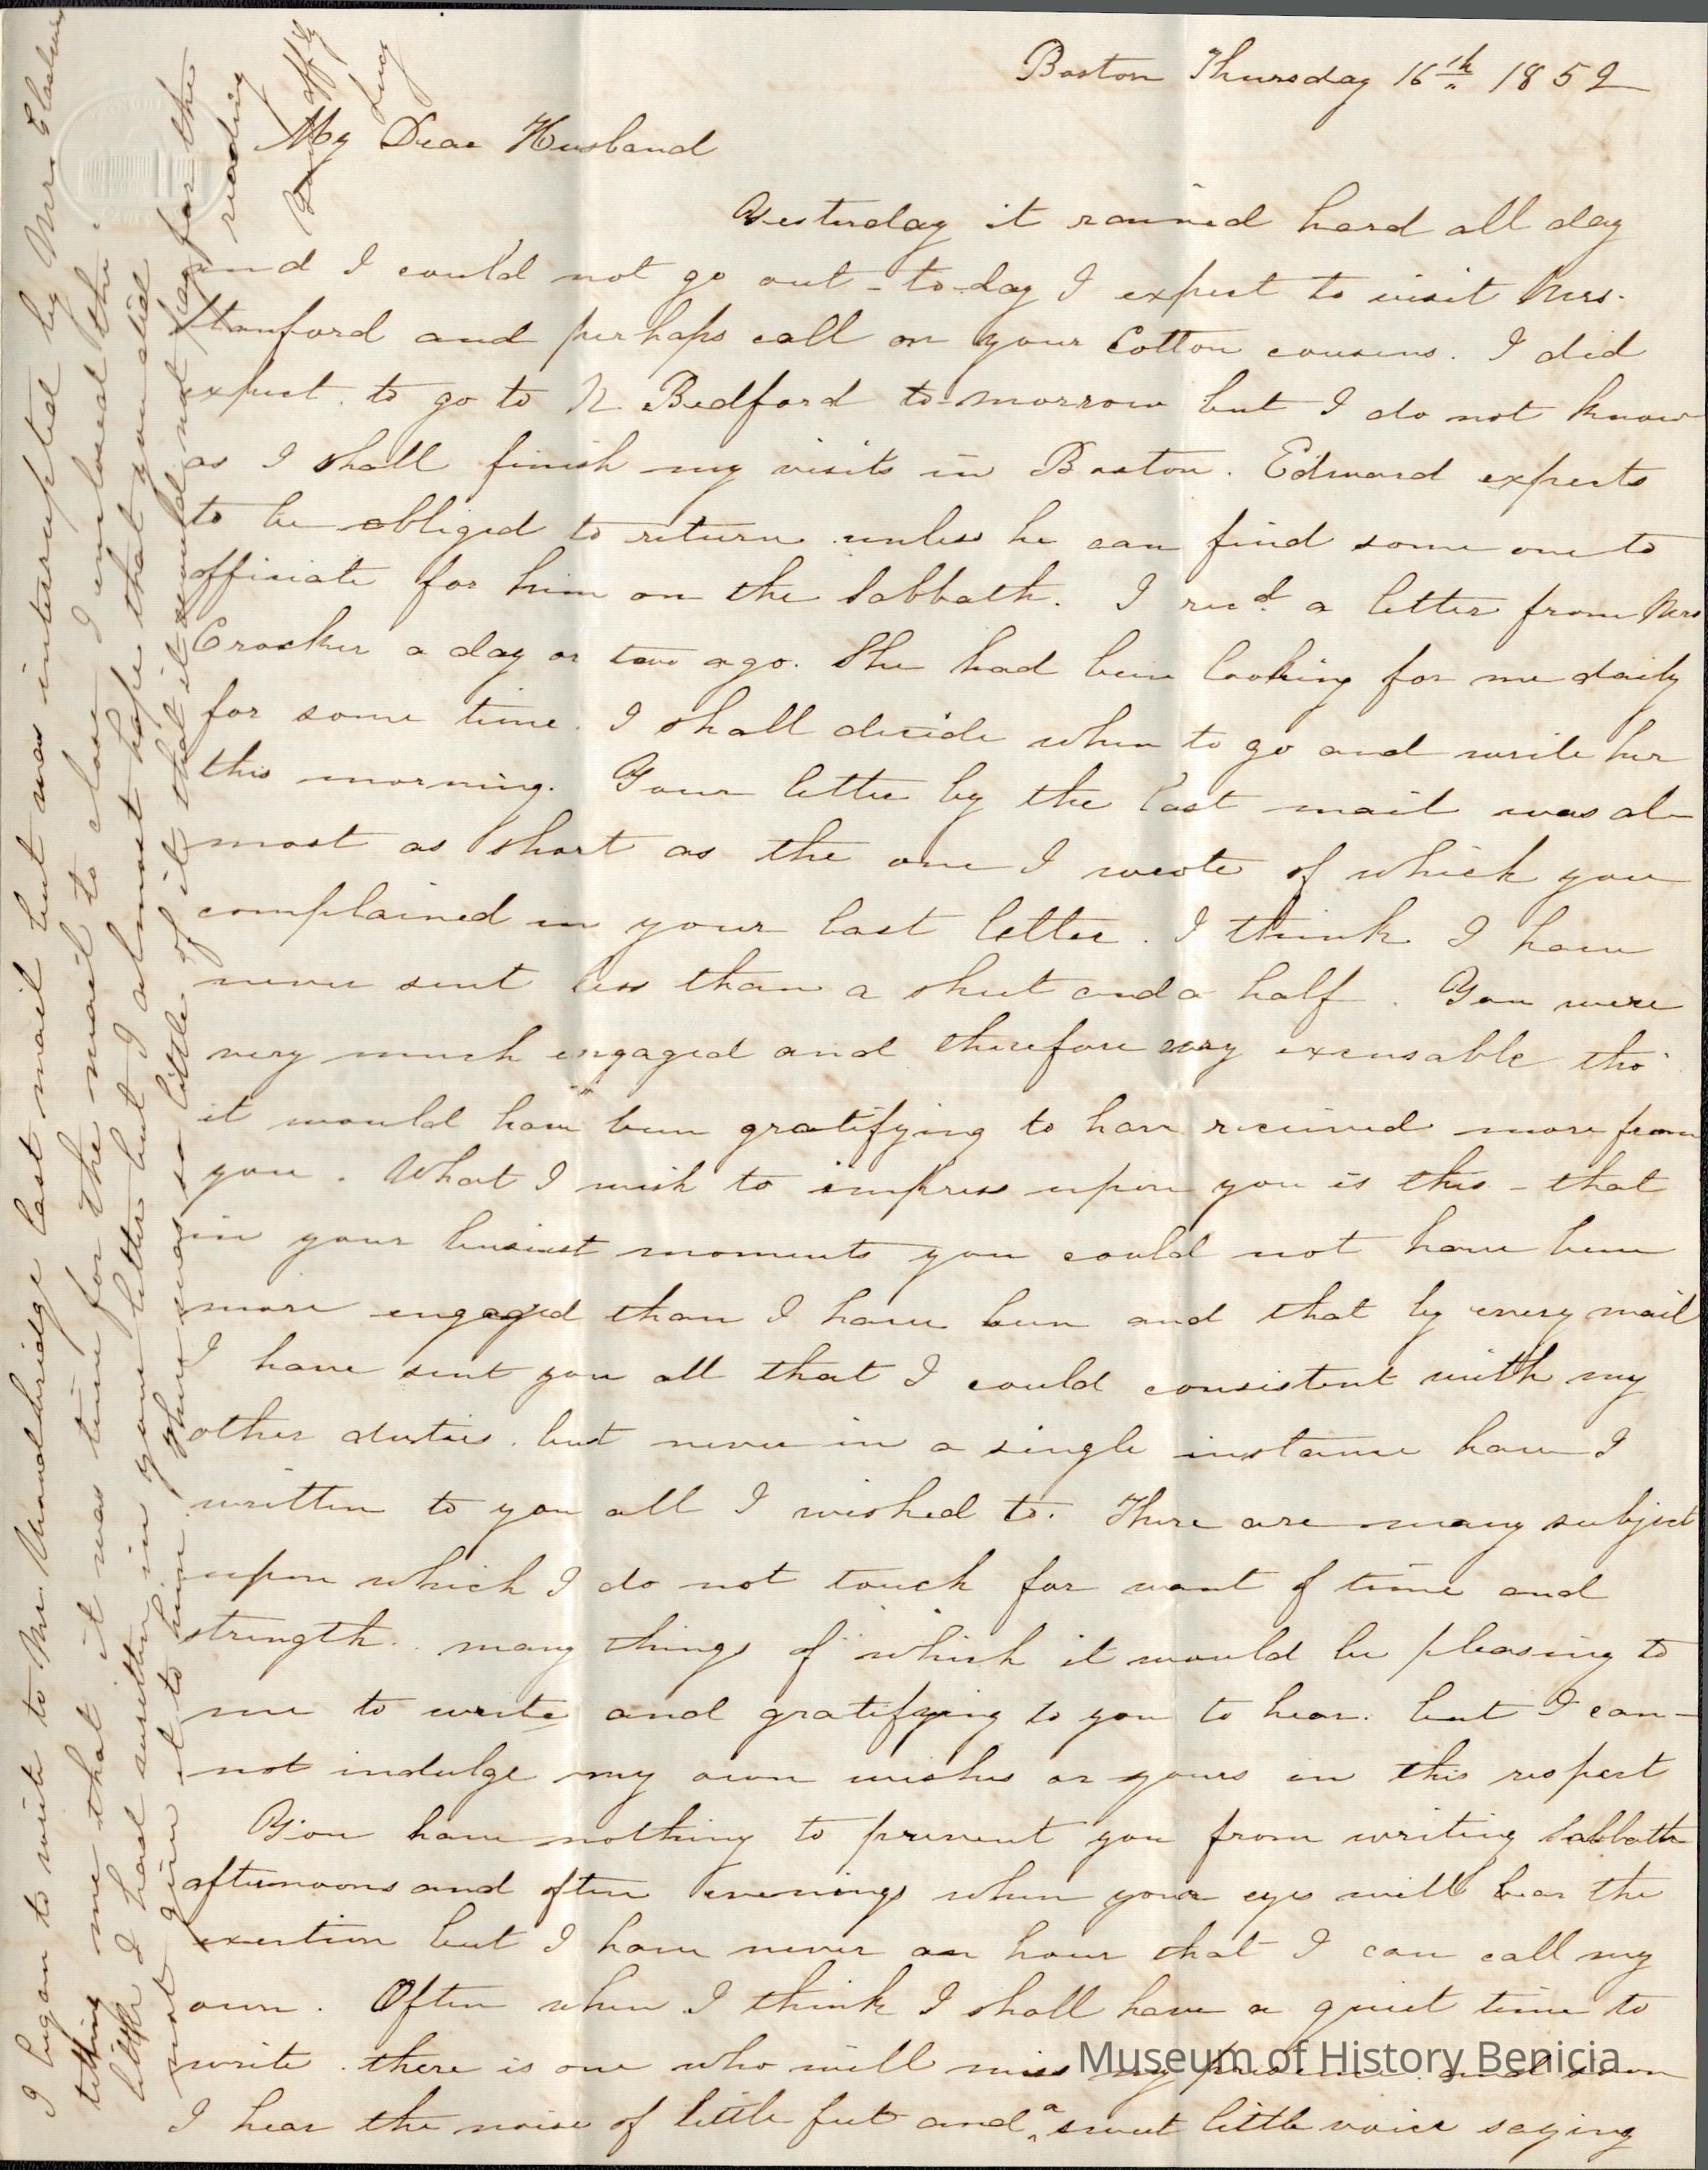 Boston Thursday 16th 1852
My Dear Husband
Yesterday it rained hard all day
and I could not go out - to-day I expect to visit Mrs.
Stanford and perhaps call on your Cotton cousins. I did
expect to go to N Bedford to-morrow but I do not know
as I shall finish my visits in Boston. Edward expects
to be obliged to return unless he can find some one to
officiate for him on the Sabbath. I recd. a letter from Mrs
Crocker a day or two ago. She had been looking for me daily
for some time. I shall decide when to go and write her
this morning. Your letter by the last mail was al-
most as short as the one I wrote of which you
complained in your last letter. I think I have
never sent less than a sheet and a half. You were
very much engaged and therefore very excusable tho'
it would have been gratifying to have received more from
you. What I wish to impress upon you is this - that
in your busiest moments you could not have been
more engaged than I have been and that by every mail
I have sent you all that I could consistent with my
other duties. but never in a single instance have I
written to you all I wished to. There are many subject
upon which I do not touch for want of time and
strength. many things of which it would be pleasing to
me to write and gratifying to you to hear. but I can-
not indulge my own wishes or yours in this respect
You have nothing to prevent you from writing Sabbath
afternoons and often evenings when your eyes will bear the
exertion but I have never an hour that I can call my
own. Often when I think I shall have a quiet time to
write. there is one who will miss my presence and soon
I hear the noise of little feet and a sweet little voice saying
I began to write to Mr Wooldridge last mail but was interrupted by Mrs
telling me that it was time for the mail to close I enclosed the
little I had written in your letter but I almost hope that you did
not give it to him. There was so little of it that it would not pay for the
reading
Museum of History Benicia